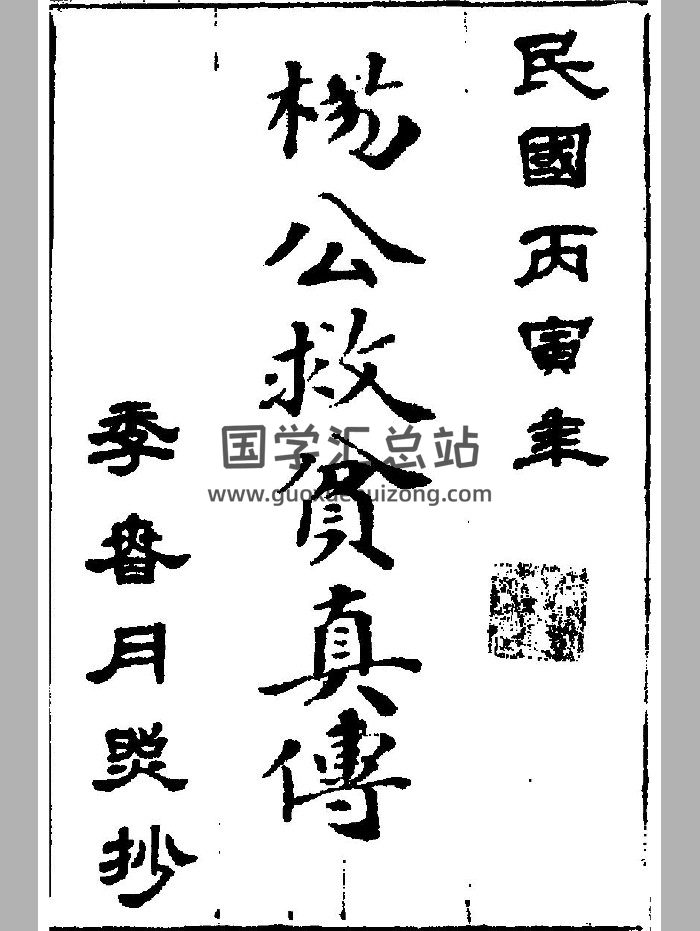 民國丙寅年
楊公救貧真傳
季春月照抄
国学汇总站
www.guoxuehuizong.com